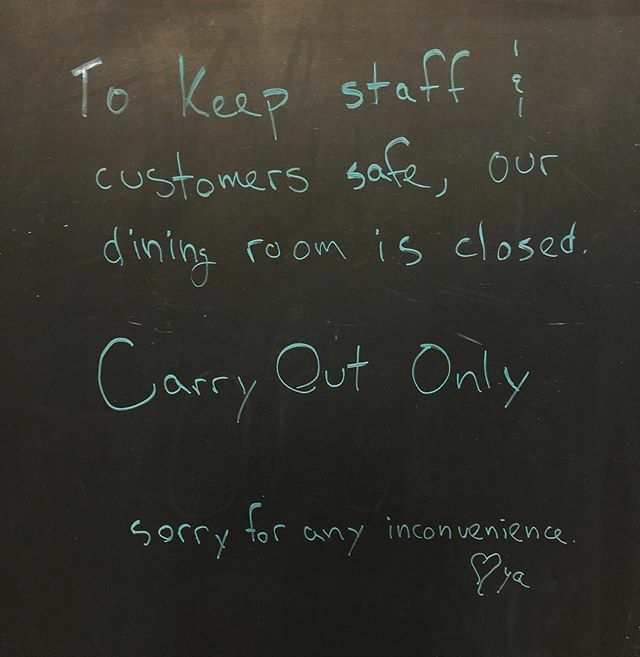 To Keep staff &
customers safe, our
dining room is closed.
Carry Out Only
sorry for any inconvenience.
♡ya